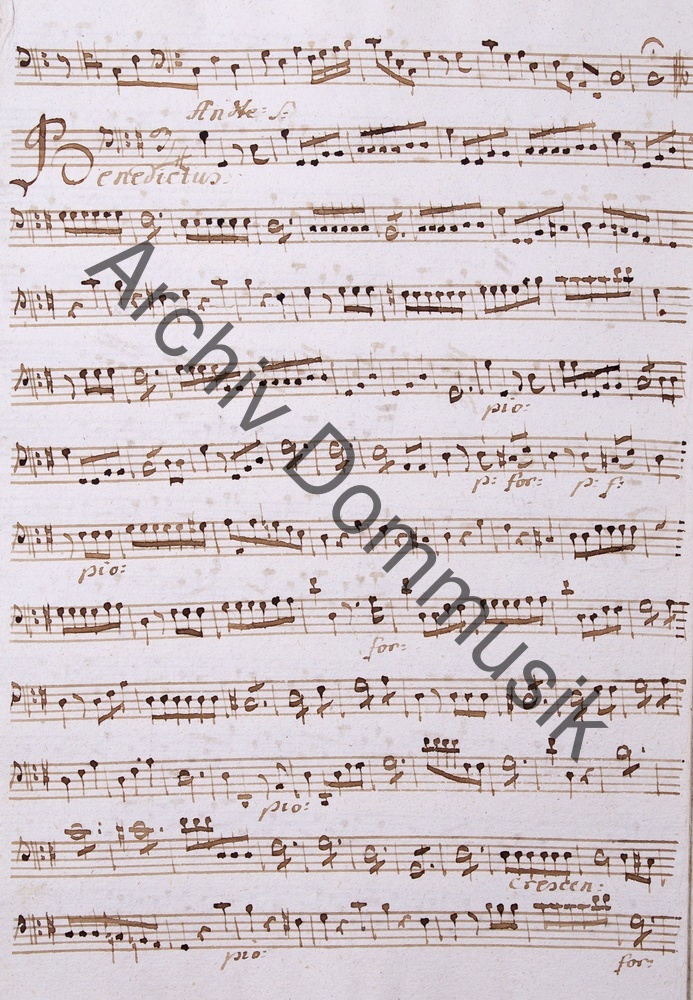 And.te: f:
Benedictus:
pio:
p: for: p: f:
pio:
for:
pio:
Crescen:
pio: for:
Archiv Dommusik